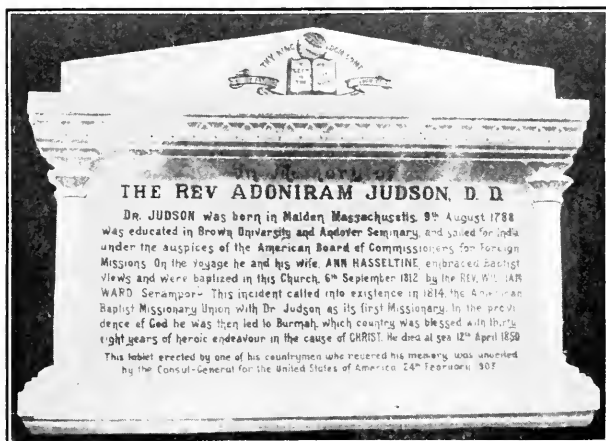 THY KINGDOM COME
In Memory of
THE REV ADONIRAM JUDSON, D. D.
DR. JUDSON was born in Malden Massachusetts. 9th August 1788
was educated in Brown University and Andover Seminary, and sailed for India
under the auspices of the American Board of Commissioners for Foreign
Missions. On the voyage he and his wife, ANN HASSELTINE, embraced Baptist
views and were baptized in this Church, 6th September 1812 by the REV. WILLIAM
WARD Serampore This incident called into existence in 1814, the American
Baptist Missionary Union with Dr Judson as its first Missionary. In the provi
dence of God he was then led to Burmah, which country was blessed with thirty
eight years of heroic endeavour in the cause of CHRIST. He died at sea 12th April 1850
This tablet erected by one of his countrymen who revered his memory, was unveiled
by the Consul-General for the United States of America 24th February 1903